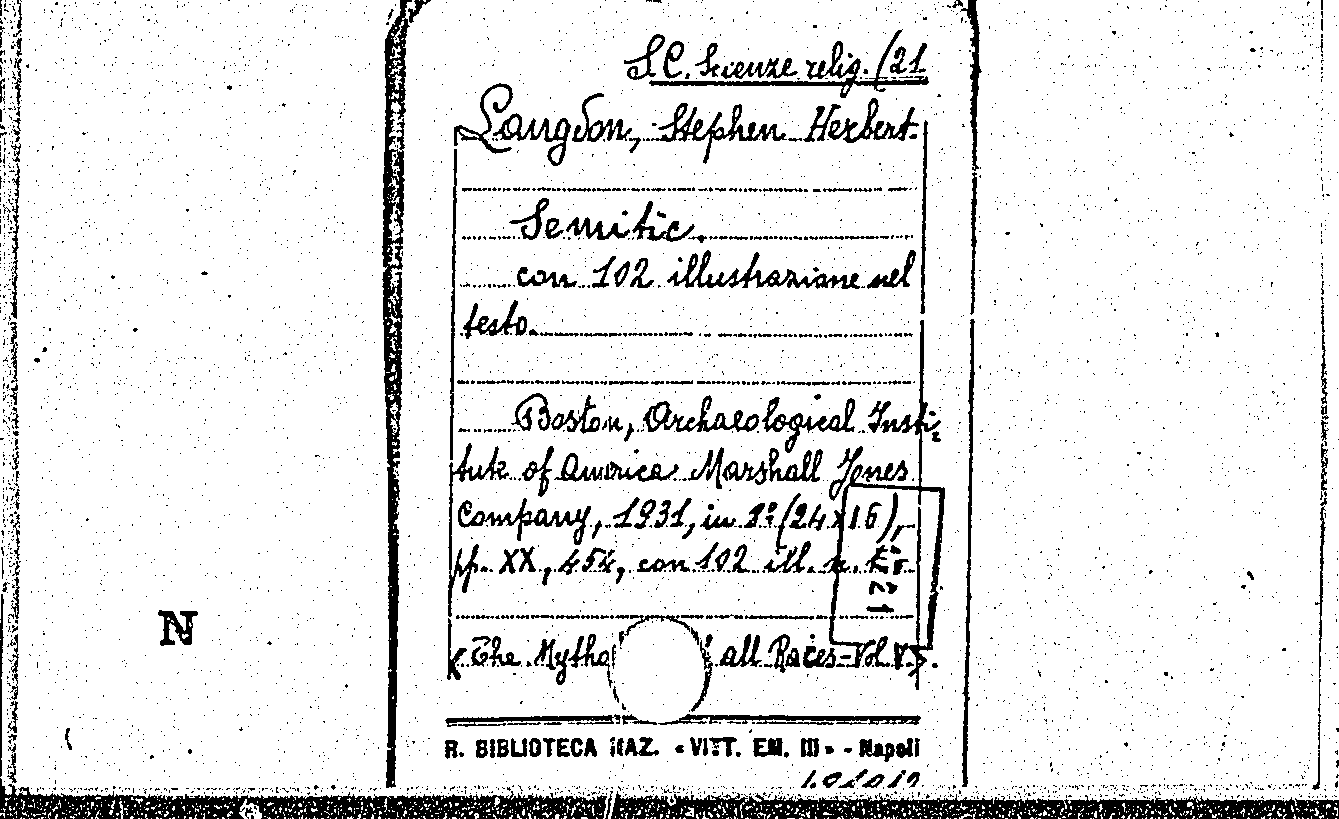 S.C. Scienze relig. /21
Langdon, Stephen Herbert.
Semitic.
con 102 illustrazione nel
testo.
Boston, Archaeological Insti-
tute of America Marshall Jones
Company, 1931, in 8° (24x16),
pp. XX, 454, con 102 ill. n. t.
21
« The Mytho all Races - Vol. V. ».
N
R. BIBLIOTECA NAZ. « VITT. EM. III » - Napoli